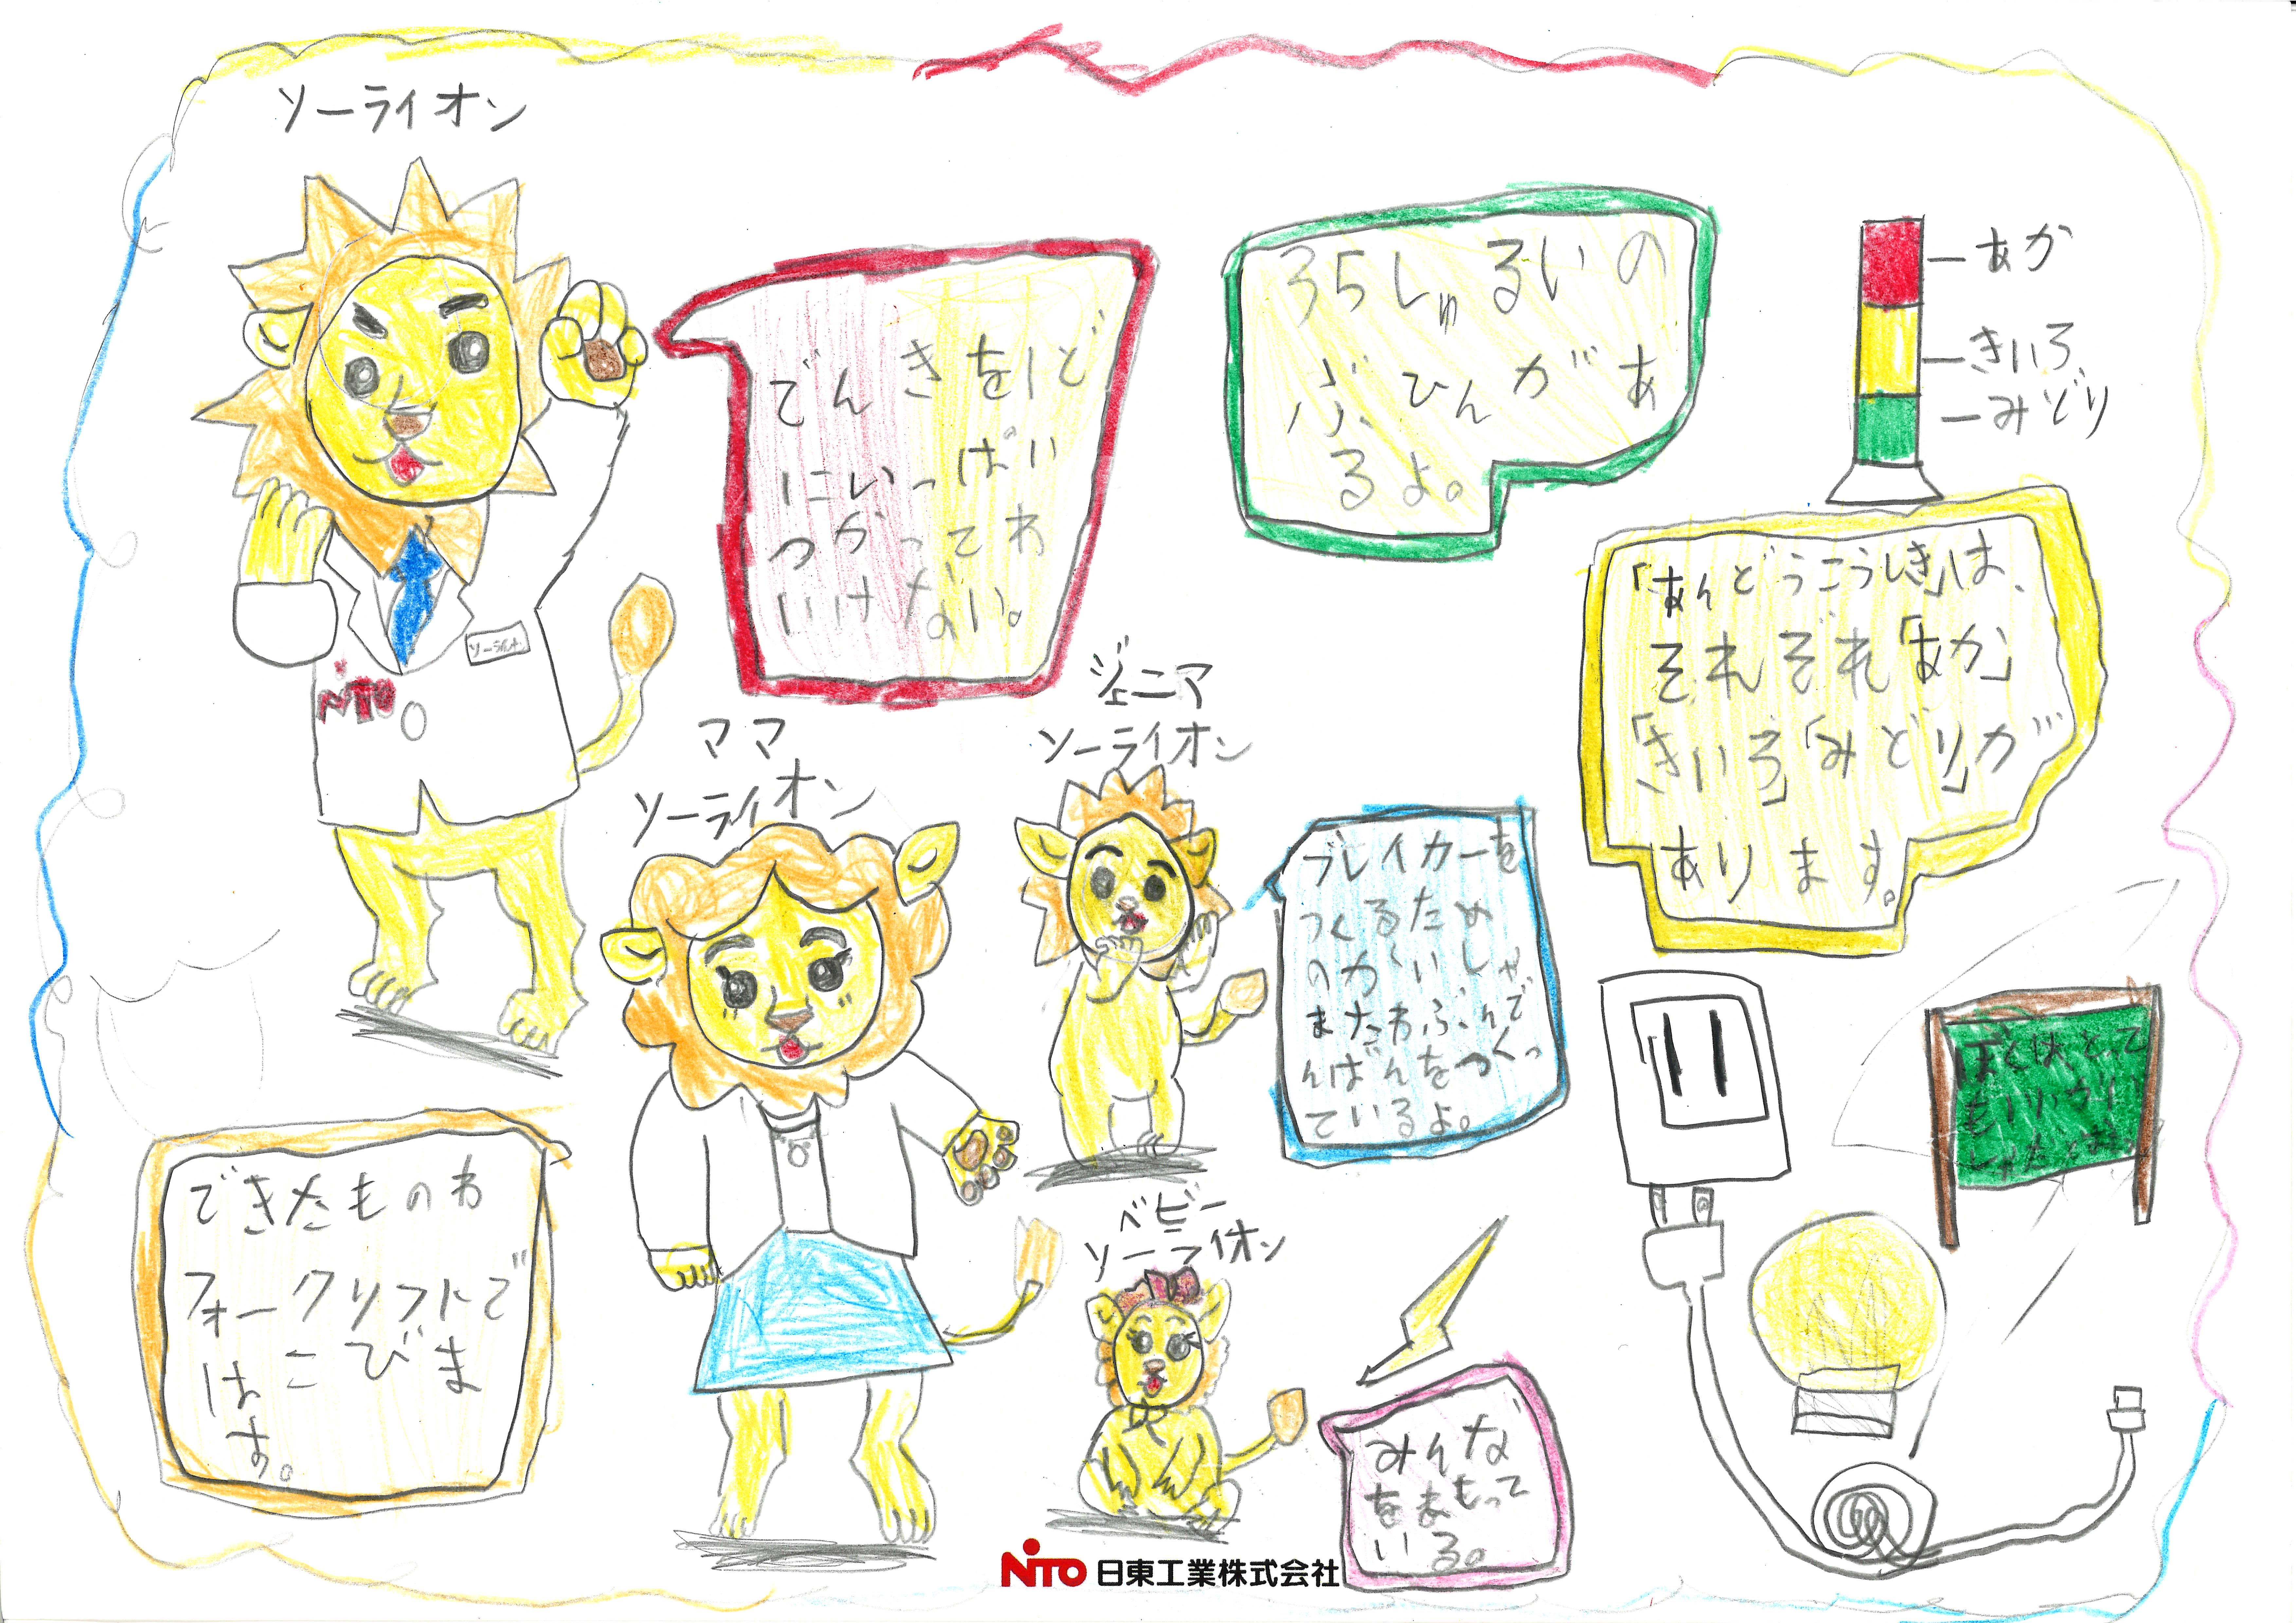 ソーライオン
でんきを1ど
にいっぱい
つかってわ
いけない。
35しゅるいの
ぶひんがあ
るよ。
あか
きいろ
みどり
「あんどうこうしき」は、
それぞれ「あか」
「きいろ」「みどり」が
あります。
ソーライオン
NITO
ママ
ソーライオン
ジュニア
ソーライオン
ブレイカーを
つくるため
のかいしゃ
またわぶんで
んばんをつくっ
ているよ。
できたものわ
フォークリフトで
はこびま
す。
ベビー
ソーライオン
みんな
をまもって
いる。
NITO 日東工業株式会社